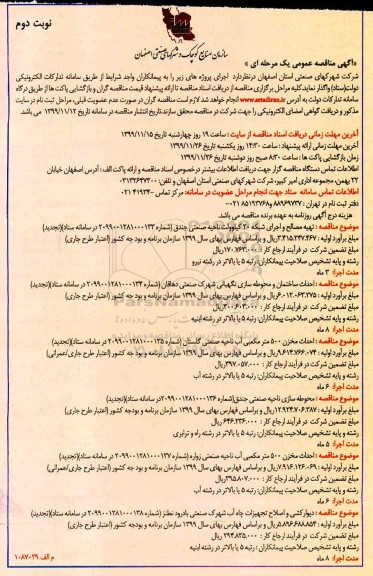 نوبت دوم
سازمان صنایع کوچک و شهرکهای صنعتی اصفهان
«آگهی مناقصه عمومی یک مرحله ای»
شرکت شهرکهای صنعتی استان اصفهان درنظردارد اجرای پروژه های زیر را به پیمانکاران واجد شرایط از طریق سامانه تدارکات الکترونیکی
دولت(ستاد)واگذار نماید.کلیه مراحل برگزاری مناقصه از دریافت اسناد مناقصه تا ارائه پیشنهاد قیمت مناقصه گران و بازگشایی پاکت ها از طریق درگاه
سامانه تدارکات دولت به آدرس www.setadiran.ir انجام خواهد شد.لازم است مناقصه گران در صورت عدم عضویت قبلی، مراحل ثبت نام در سایت
مذکور و دریافت گواهی امضای الکترونیکی را جهت شرکت در مناقصه محقق سازند.تاریخ انتشار مناقصه در سامانه تاریخ ۱۳۹۹/۱۱/۱۲ می باشد.
آخرین مهلت زمانی دریافت اسناد مناقصه از سایت : ساعت ۱۹ روز چهارشنبه تاریخ ۱۳۹۹/۱۱/۱۵
آخرین مهلت زمانی ارائه پیشنهاد: ساعت ۱۴:۳۰ روز یکشنبه تاریخ ۱۳۹۹/۱۱/۲۶
زمان بازگشایی پاکت ها : ساعت ۸:۳۰ صبح روز دوشنبه تاریخ
اطلاعات تماس دستگاه مناقصه گزار جهت دریافت اطلاعات بیشتر درخصوص اسناد مناقصه و ارائه پاکت الف : آدرس اصفهان خیابان
۲۲ بهمن، مجموعه اداری امیر کبیر، شرکت شهرکهای صنعتی استان اصفهان و تلفن:
اطلاعات تماس سامانه ستاد جهت انجام مراحل عضویت در سامانه: مرکز تماس ۴۱۹۳۴-۰۲۱
دفتر ثبت نام در تهران : ۸۸۹۶۹۷۳۷ و ۸۵۱۹۳۷۶۸-۰۲۱
هزینه درج آگهی روزنامه به عهده برنده مناقصه می باشد.
موضوع مناقصه : تهیه مصالح و اجرای شبکه ۲۰ کیلوولت ناحیه صنعتی جندق (شماره ۲۰۹۹۰۰۱۲۸۱۰۰۰۱۳۲ در سامانه ستاد)(تجدید)
مبلغ برآورد اولیه : ریال و براساس فهارس بهای سال ۱۳۹۹ سازمان برنامه و بودجه کشور (اعتبار طرح جاری)
مبلغ تضمین شرکت در فرآیند ارجاع کار : ریال
رشته و پایه تشخیص صلاحیت پیمانکاران: رتبه ۵ یا بالاتر در رشته نیرو
مدت اجرا: ۳ ماه
موضوع مناقصه : احداث ساختمان و محوطه سازی نگهبانی شهرک صنعتی دهاقان (شماره ۲۰۹۹۰۰۱۲۸۱۰۰۰۱۳۴ در سامانه ستاد)(تجدید)
مبلغ برآورد اولیه : ریال و براساس فهارس بهای سال ۱۳۹۹ سازمان برنامه و بودجه کشور (اعتبار طرح جاری)
مبلغ تضمین شرکت در فرآیند ارجاع کار : ریال
رشته و پایه تشخیص صلاحیت پیمانکاران: رتبه ۵ یا بالاتر در رشته ابنیه
مدت اجرا: ۸ ماه
موضوع مناقصه : احداث مخزن ۵۰۰ متر مکعبی آب ناحیه صنعتی گلستان (شماره ۲۰۹۹۰۰۱۲۸۱۰۰۰۱۳۵ در سامانه ستاد)(تجدید)
مبلغ برآورد اولیه : ریال و براساس فهارس بهای سال ۱۳۹۹ سازمان برنامه و بودجه کشور (اعتبار طرح جاری/عمرانی)
مبلغ تضمین شرکت در فرآیند ارجاع کار : ریال
رشته و پایه تشخیص صلاحیت پیمانکاران: رتبه ۵ یا بالاتر در رشته آب
مدت اجرا: ۶ ماه
موضوع مناقصه : محوطه سازی ناحیه صنعتی جندق(شماره ۲۰۹۹۰۰۱۲۸۱۰۰۰۱۳۶ در سامانه ستاد)(تجدید)
مبلغ برآورد اولیه : ۱۲,۹۲۴,۷۰۶,۲۸۷ ریال و براساس فهارس بهای سال ۱۳۹۹ سازمان برنامه و بودجه کشور (اعتبار طرح جاری)
مبلغ تضمین شرکت در فرآیند ارجاع کار : ۶۴۶,۲۳۶,۰۰۰ ریال
رشته و پایه تشخیص صلاحیت پیمانکاران: رتبه ۵ یا بالاتر در رشته راه و ترابری
مدت اجرا: ۵ ماه
موضوع مناقصه : احداث مخزن ۵۰۰ متر مکعبی آب ناحیه صنعتی زواره (شماره ۲۰۹۹۰۰۱۲۸۱۰۰۰۱۳۷ در سامانه ستاد)(تجدید)
مبلغ برآورد اولیه : ۷,۹۱۶,۱۲۶,۰۶۹ ریال و براساس فهارس بهای سال ۱۳۹۹ سازمان برنامه و بودجه کشور (اعتبار طرح جاری/عمرانی)
مبلغ تضمین شرکت در فرآیند ارجاع کار : ۳۹۵,۸۰۷,۰۰۰ ریال
رشته و پایه تشخیص صلاحیت پیمانکاران: رتبه ۵ یا بالاتر در رشته آب
مدت اجرا: ۶ ماه
موضوع مناقصه : دیوارکشی و اصلاح تجهیزات چاه آب شهرک صنعتی بادرود نطنز (شماره ۲۰۹۹۰۰۱۲۸۱۰۰۰۱۳۸ در سامانه ستاد)(تجدید)
مبلغ برآورد اولیه : ۵,۸۹۶,۶۸۸,۸۵۴ ریال و براساس فهارس بهای سال ۱۳۹۹ سازمان برنامه و بودجه کشور (اعتبار طرح جاری)
مبلغ تضمین شرکت در فرآیند ارجاع کار : ۲۹۴,۸۳۵,۰۰۰ ریال
رشته و پایه تشخیص صلاحیت پیمانکاران: رتبه ۵ یا بالاتر در رشته ابنیه
مدت اجرا: ۸ ماه
م الف ۱۰۸۷۰۲۹